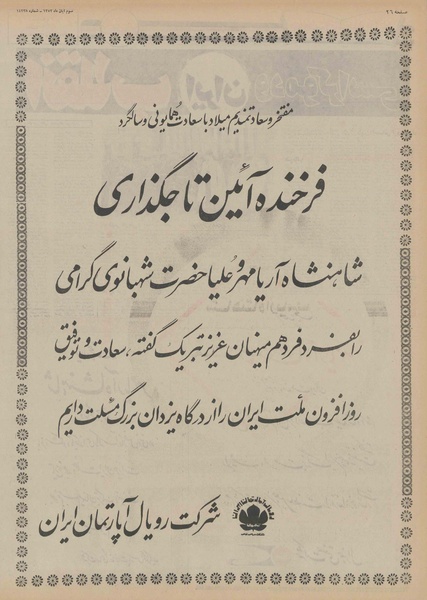 صفحه ۲۶
مفتخر و سعادتمندیم میلاد با سعادت همایونی و سالگرد
فرخنده آئین تاجگذاری
شاهنشاه آریامهر و علیا حضرت شهبانوی گرامی
را بفرد فرد هم میهنان عزیز تبریک گفته، سعادت و توفیق
روزافزون ملت ایران را از درگاه یزدان بزرگ مسئلت داریم
شرکت رویال آپارتمان ایران